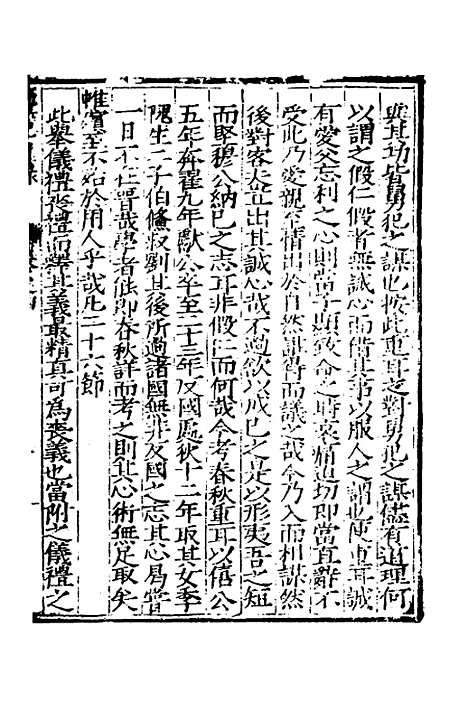 與其功皆舅犯之謀也按此重耳之對舅犯之謀儘有道理何
以謂之假仁假者無誠心而借其事以服人之謂也使重耳誠
有愛父忘利之心則當子顯致命之時哀痛迫切即當直辭不
受此乃愛親至情出於自然詎得而議哉今乃入而相謀然
後對客夫豈出其誠心哉不過欲以成巳之是以形夷吾之短
而堅穆公納巳之志耳非假仁而何哉今考春秋重耳以僖公
五年奔翟九年獻公卒至二十三年反國處狄十二年取其女季
隗生二子伯鯈叔劉其後所過諸國無非反國之志其心曷嘗
一日不在晉哉學者能即春秋詳而考之則其心術無足取矣
惟實至不殆於用人乎哉凡二十六節
此舉儀禮喪禮而釋其義最精真可為喪義也當附之儀禮之